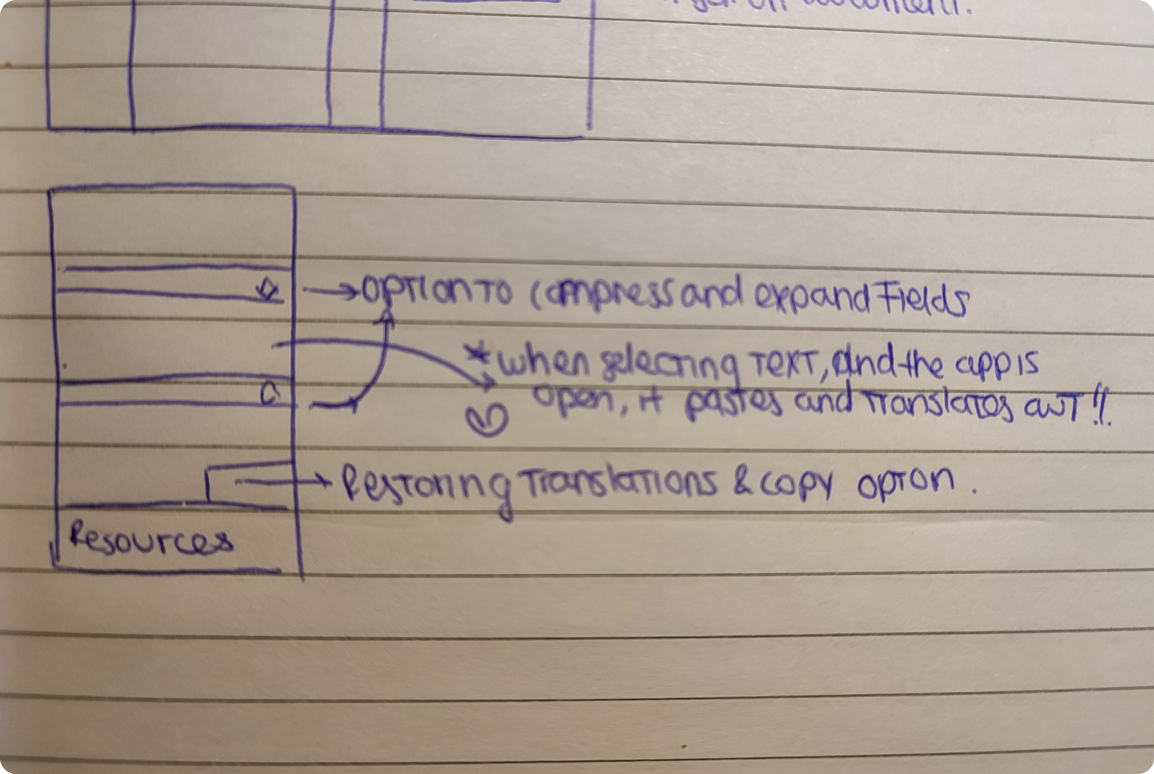 document.
OPTION TO compress and expand Fields
*when selecting TEXT, and the app is
open, it pastes and translates aut!!
Restoring Translations & copy option.
Resources